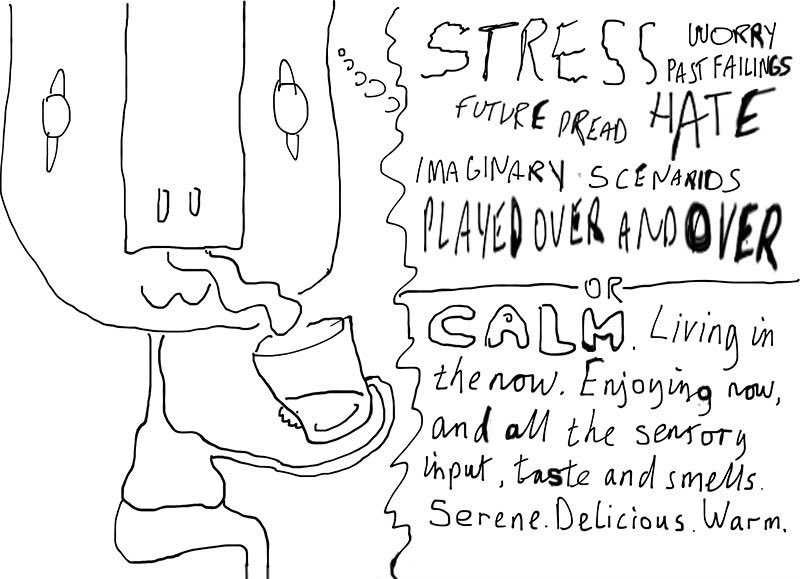 STRESS WORRY
PAST FAILINGS
FUTURE DREAD HATE
IMAGINARY SCENARIOS
PLAYED OVER AND OVER
OR
CALM. Living in
the now. Enjoying now,
and all the sensory
input, taste and smells.
Serene. Delicious. Warm.